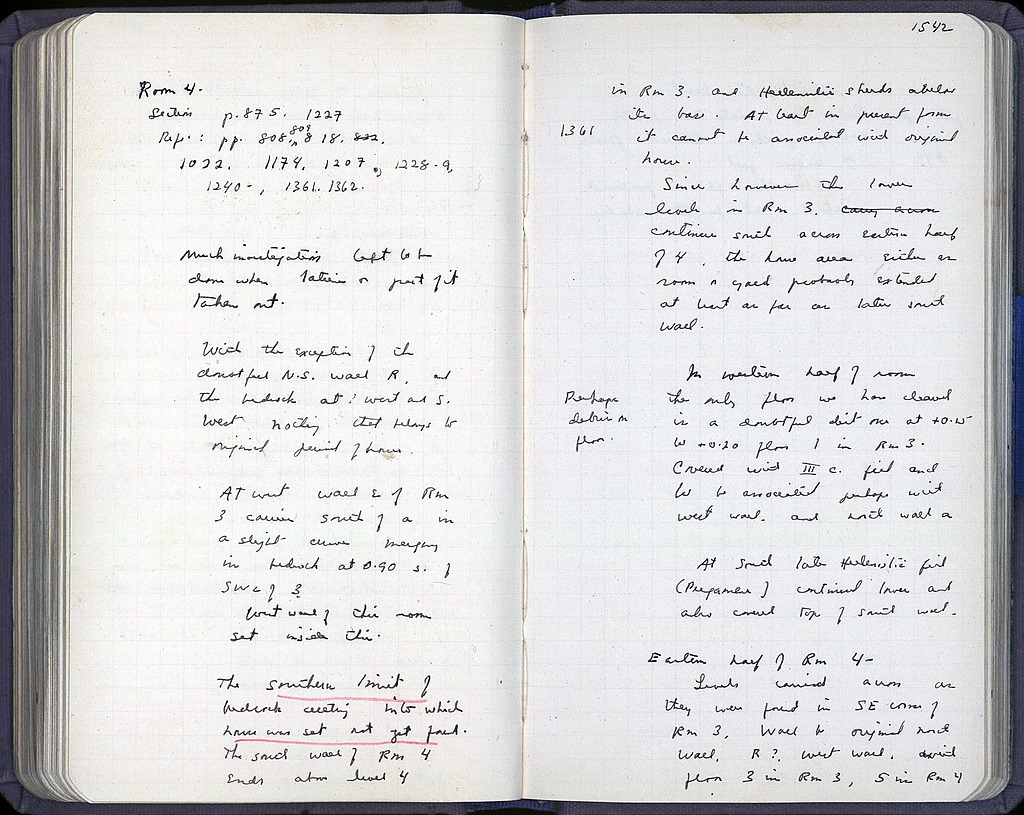 Room 4.
Section p. 875. 1227
Ref: pp. 808, 809, 818. 822.
1022. 1174. 1207, 1228-9,
1240-, 1361. 1362.
Much investigation left to be
done when latrine or part of it
taken out.
With the exception of the
doubtful N.S. wall R, and
the bedrock at west and S.
West nothing that belongs to
original period of house.
At west wall E of Rm
3 carries south of a in
a slight curve merging
in bedrock at 0.90 S. of
SW c of 3
West wall of this room
set inside this.
The southern limit of
bedrock cutting into which
house was set not yet found.
The south wall of Rm 4
Ends above level 4
1542
in Rm 3. and Hellenistic sherds below
its base. At least in present form
1361 it cannot be associated with original
house.
Since however the lower
levels in Rm 3. carry across
continue south across eastern half
of 4, the house area either as
room or yard probably extended
at least as far as later south
wall.
In western half of room
Perhaps the only floor we have cleared
debris on is a doubtful dirt one at +0.15
floor. to +0.20 floor 1 in Rm 3.
Covered with III c. fill and
to be associated perhaps with
west wall. and north wall a
At south late Hellenistic fill
(Pergamene) continued lower and
also covered top of south wall.
Eastern half of Rm 4-
Levels carried across as
they were found in SE corner of
Rm 3. Wall to original north
wall, R?, west wall,
floor 3 in Rm 3, 5 in Rm 4